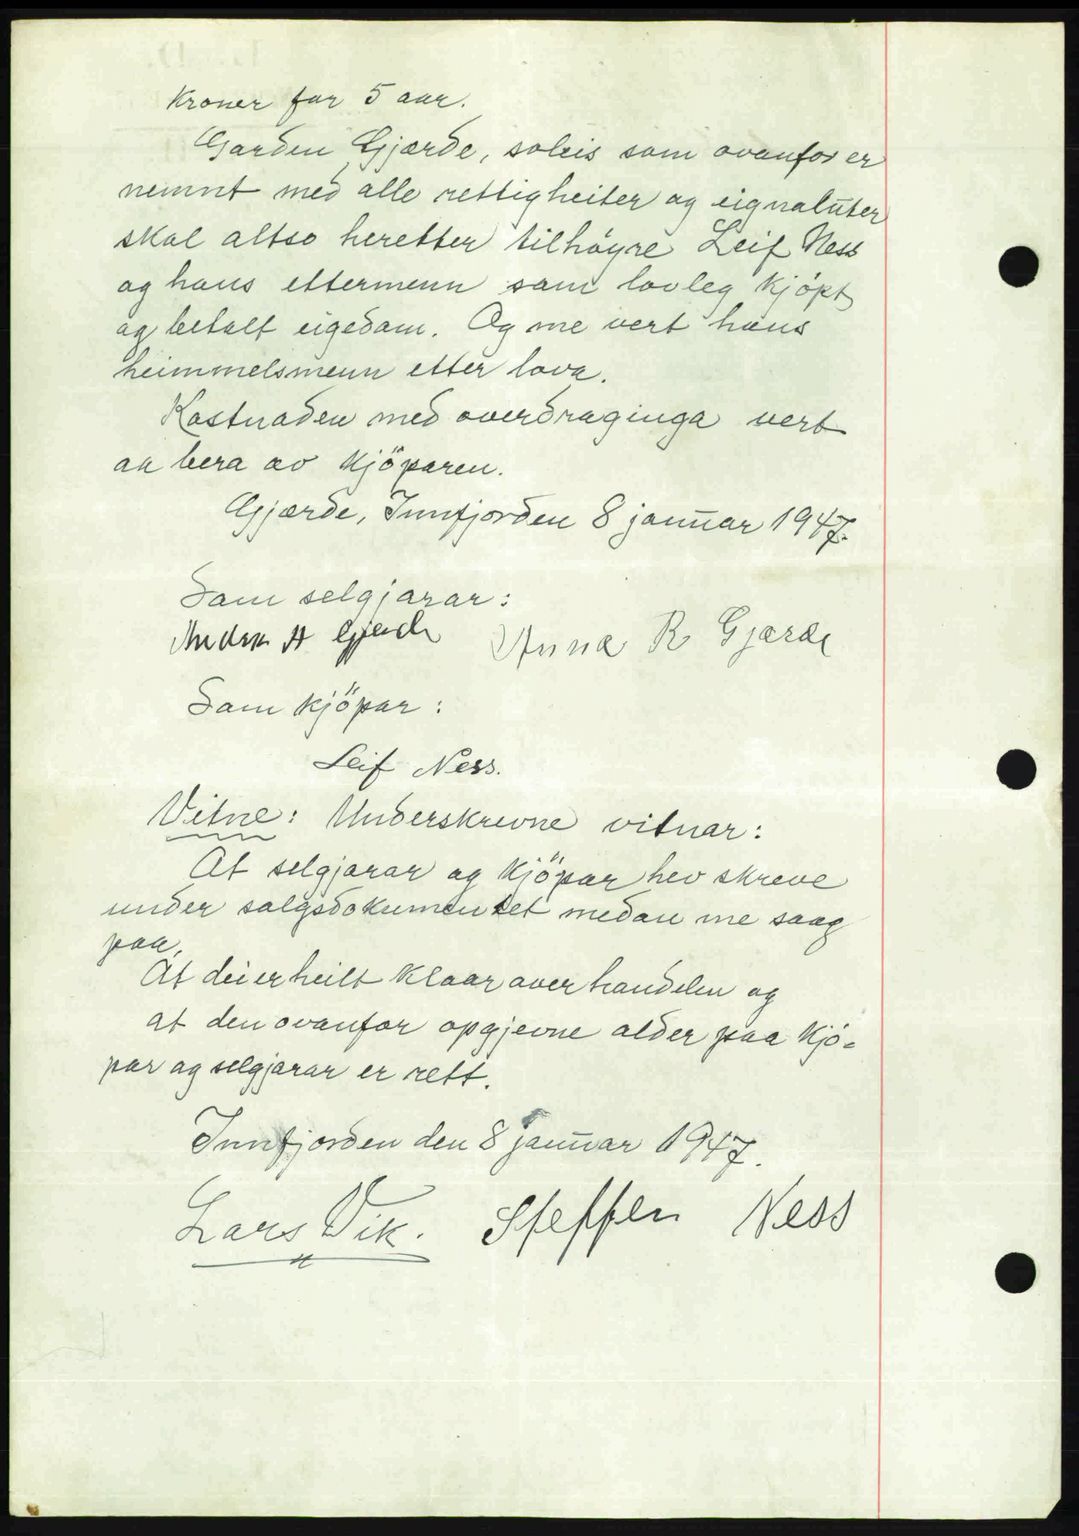 Kroner for 5 aar.
Garden Gjærde, soleis som ovanfor er
nemnt med alle rettigheiter og eignaluter
skal altso heretter tilhöyre Leif Ness
og hans ettermenn som lovleg kjöpt
og betalt eigedom. Og me vert hans
heimmelsmenn etter lova.
Kostnaden med overdraginga vert
aa bera av kjöparen.
Gjærde, Innfjorden 8 januar 1947.
Som selgjarar:
A Gjerde Anna R Gjærde
Som kjöpar:
Leif Ness.
Vitne: Underskrevne vitnar:
At selgjarar og kjöpar hev skreve
under salgsdokumentet medan me saag
paa.
At dei er heilt klaar over handelen og
at den ovanfor opgjevne alder paa kjö-
par og selgjarar er rett.
Innfjorden den 8 januar 1947.
Lars Vik. Steffen Ness